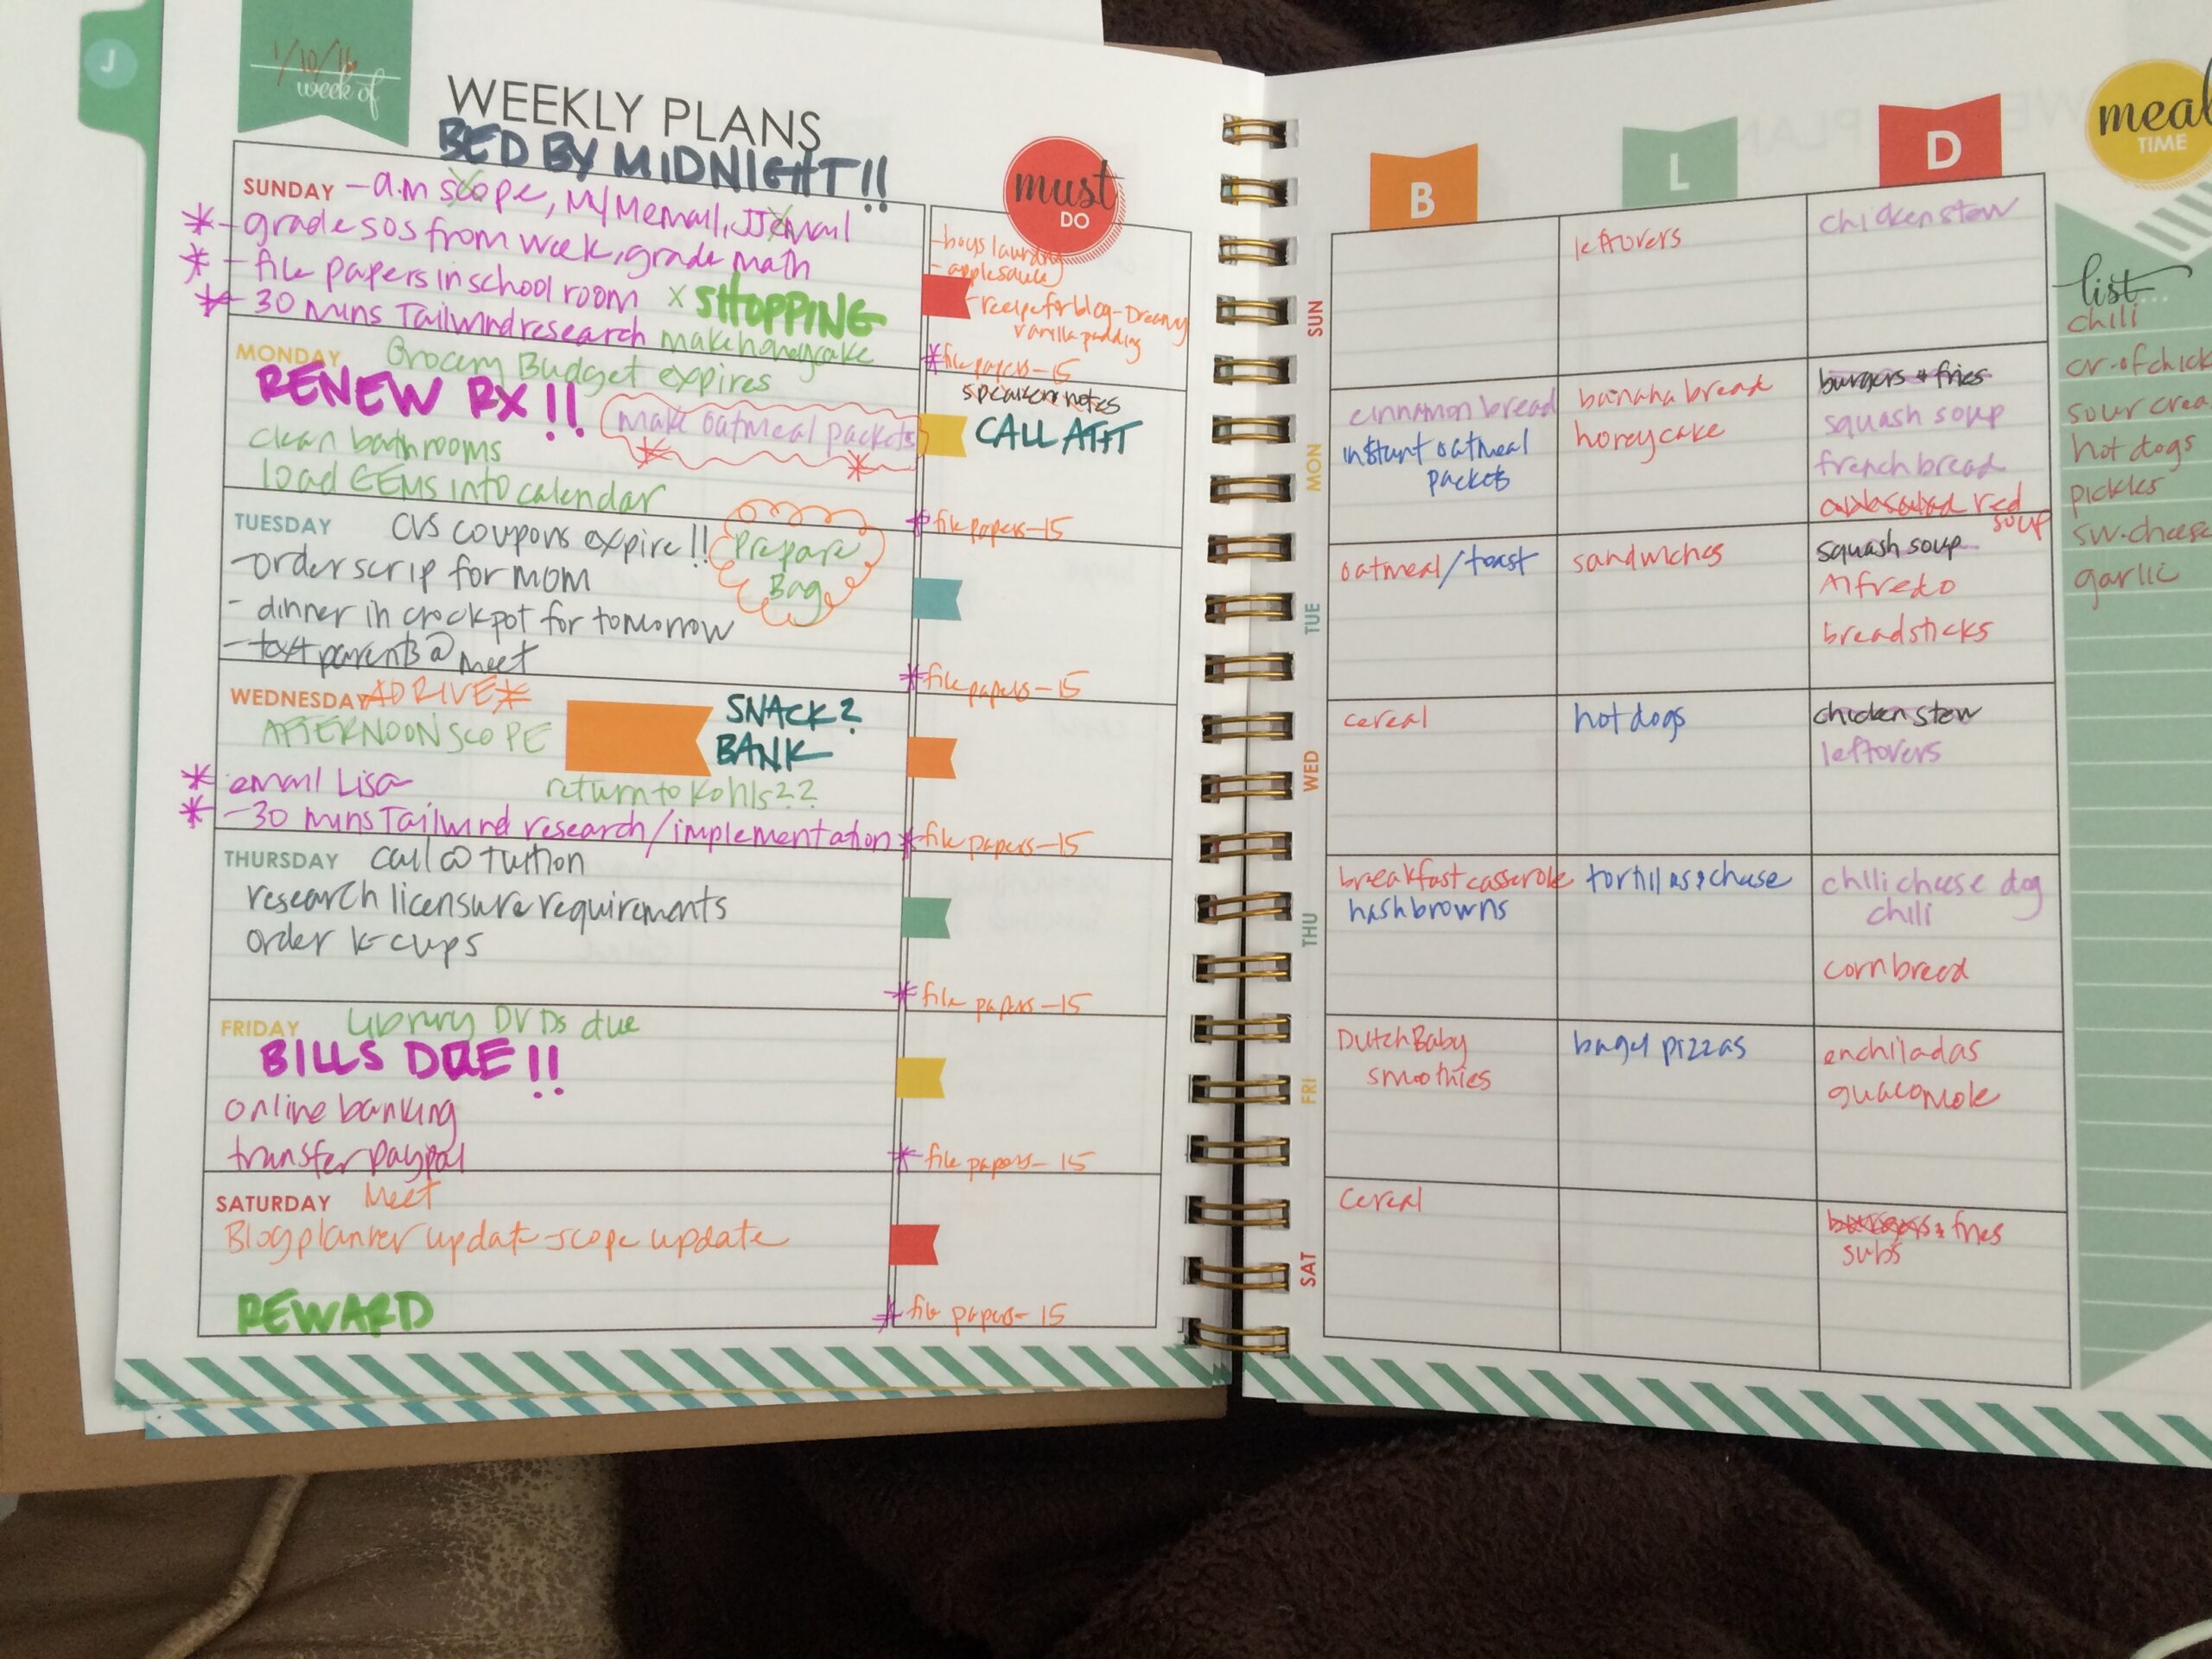 J
1/10/16
week of
WEEKLY PLANS
BED BY MIDNIGHT!!
SUNDAY -a.m scope, M/M email, JJ email
*- grade sos from week, grade math
* - file papers in school room x SHOPPING
* - 30 mins Tailwind research make honeycake
must
DO
-boys laundry
- applesauce
- recipe for blog - Dreamy
vanilla pudding
* file papers - 15
MONDAY Grocery Budget expires
RENEW RX!! make oatmeal packets
clean bathrooms
load EEMS into calendar
speaker notes
CALL AT+T
* file papers - 15
TUESDAY CVS coupons expire!! Prepare
Bag
-order scrip for mom
- dinner in crockpot for tomorrow
- text parents @ meet
* file papers - 15
WEDNESDAY AD RIVE*
AFTERNOON SCOPE
SNACK?
BANK
* email Lisa return to Kohls??
* -30 mins Tailwind research/implementation * file papers - 15
THURSDAY call @ tuition
research licensure requirements
order k-cups
* file papers - 15
FRIDAY Library DVDs due
BILLS DUE!!
online banking
transfer paypal
* file papers - 15
SATURDAY Meet
Blog planner update - scope update
REWARD
* file papers - 15
B L D
meal
TIME
SUN
leftovers
chicken stew
MON
cinnamon bread
instant oatmeal
packets
banana bread
honeycake
burgers + fries
squash soup
french bread
red
soup
TUE
oatmeal/toast
sandwiches
squash soup
Alfredo
breadsticks
WED
cereal
hot dogs
chicken stew
leftovers
THU
breakfast casserole
hashbrowns
tortillas & cheese
chili cheese dog
chili
cornbread
FRI
Dutch Baby
smoothies
bagel pizzas
enchiladas
guacamole
SAT
cereal
burgers & fries
subs
list...
chili
cr. of chick
sour crea
hot dogs
pickles
sw. cheese
garlic